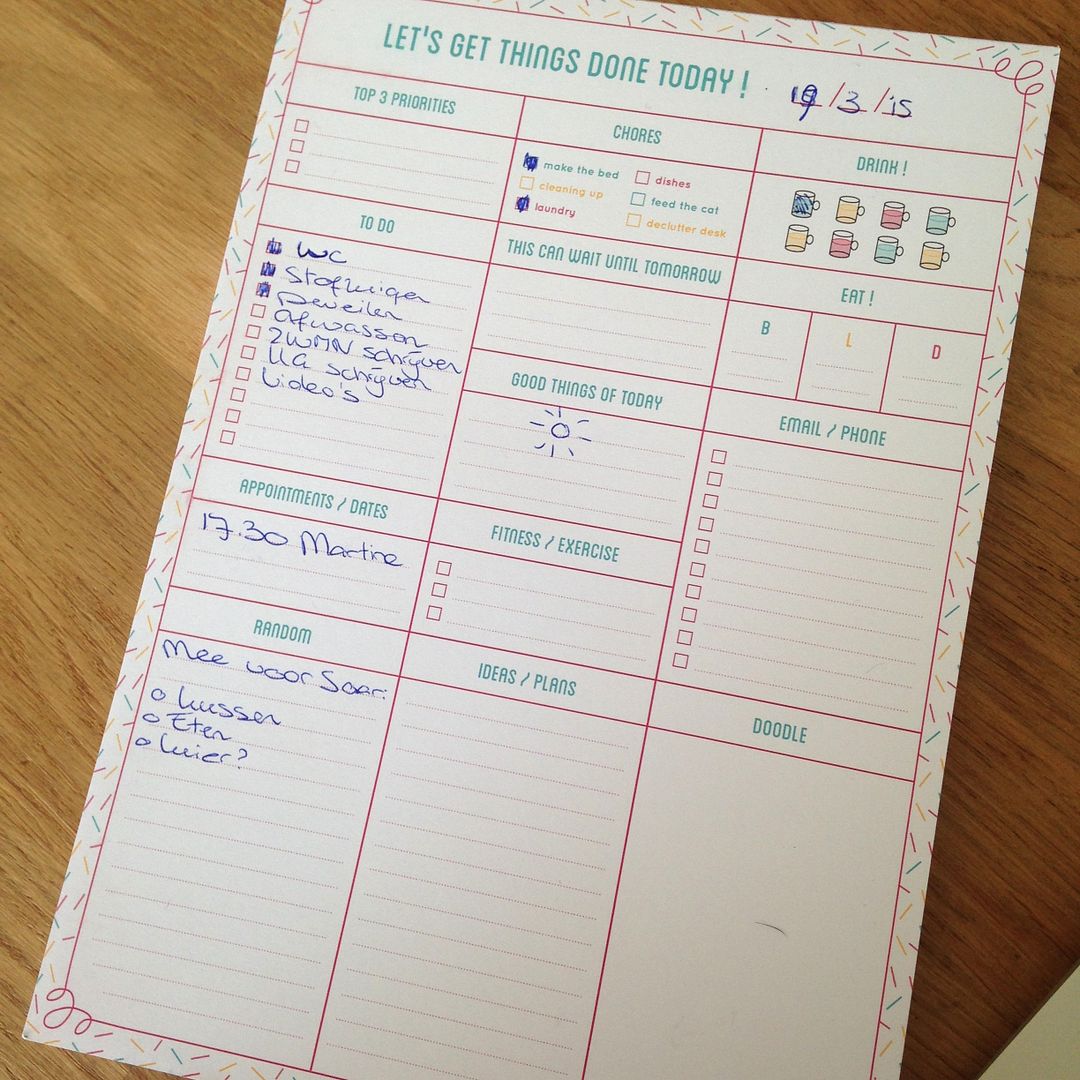 LET'S GET THINGS DONE TODAY !
19/3/15
TOP 3 PRIORITIES
CHORES
make the bed
dishes
cleaning up
feed the cat
laundry
declutter desk
DRINK !
TO DO
WC
Stofzuigen
Dweilen
Afwassen
ZWMN schrijven
LLG schrijven
Video's
THIS CAN WAIT UNTIL TOMORROW
EAT !
B
L
D
GOOD THINGS OF TODAY
EMAIL / PHONE
APPOINTMENTS / DATES
17.30 Martine
FITNESS / EXERCISE
RANDOM
Mee voor Saar:
o kussen
o Eten
o luier?
IDEAS / PLANS
DOODLE